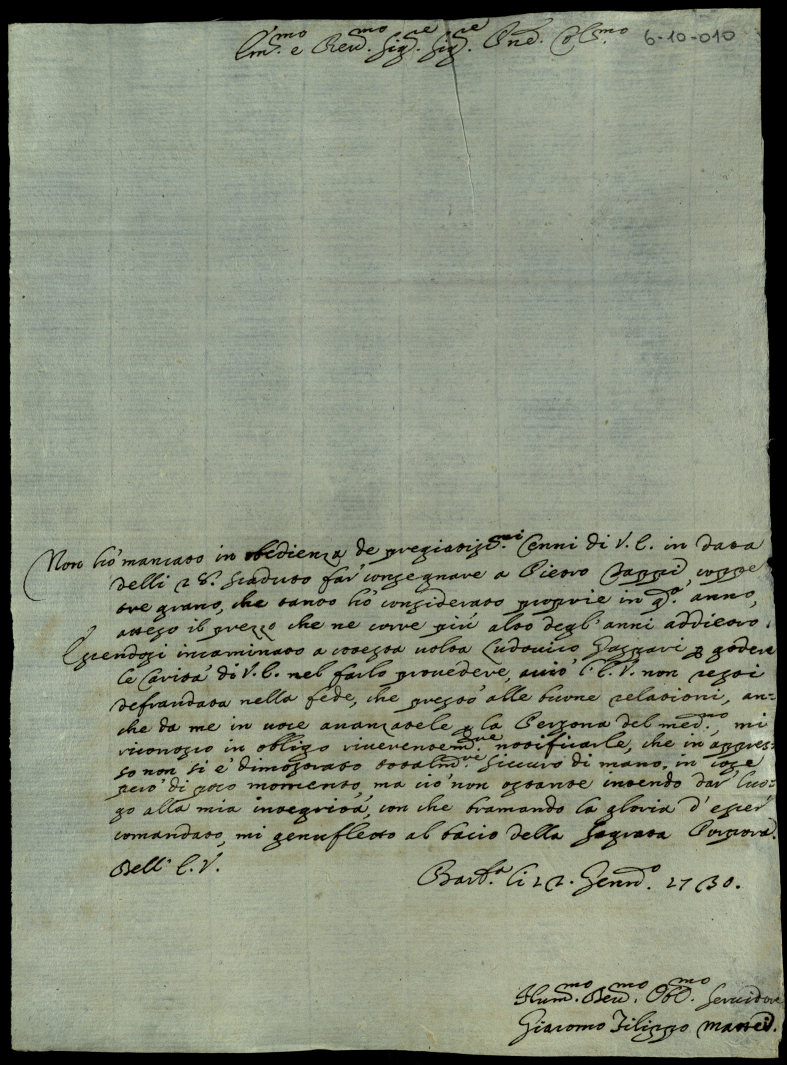 Em.mo e Rev.mo Sig.re Sig.re Pne. Col.mo 6-10-010
Non hò mancato in obedienza de pregiatiss.mi Cenni di V. E. in data
delli 28. scaduto far' consegnare a Pietro Zappi, coppe
tre grano, che tanto hò considerato proprie in q.o anno,
atteso il prezzo che ne corre più alto degl' anni addietro.
Essendosi incaminato a cotesta volta Ludovico Gaspari p godere
le Carità di V. E. nel farlo provedere, acciò l'E. V. non resti
defraudata nella fede, che prestò alle buone relationi, an=
che da me in voce avanzatele p la Persona del med.mo, mi
riconosco in obligo riverentem.te notificarle, che in appres=
so non si è dimostrato totalm.te sicuro di mano, in cose
però di poco momento, ma ciò non ostante intendo dar' luo=
go alla mia integrità, con che bramando la gloria d'esser'
comandato, mi genufletto al bacio della Sagrata Porpora.
Dell' E. V.
Barb.a li 22. Genn.o 1730.
Hum.mo Dev.mo Obb.mo Servidore
Giacomo Filippo Mattei.